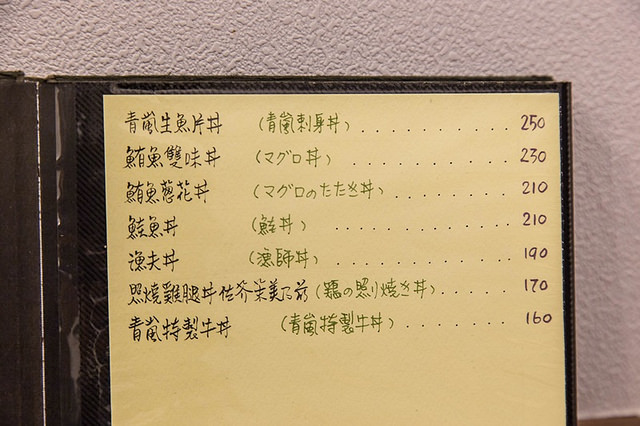 青嵐生魚片丼 (青嵐刺身丼) . . . . . . . . . . . . 250
鮪魚雙味丼 (マグロ丼) . . . . . . . . . . . . . 230
鮪魚蔥花丼 (マグロのたたき丼) . . . . . . . . . 210
鮭魚丼 (鮭丼) . . . . . . . . . . . . . 210
漁夫丼 (漁師丼) . . . . . . . . . . . . . 190
照燒雞腿丼佐芥茉美乃滋 (鶏の照り焼き丼) . . . . . . 170
青嵐特製牛丼 (青嵐特製牛丼) . . . . . . . . 160